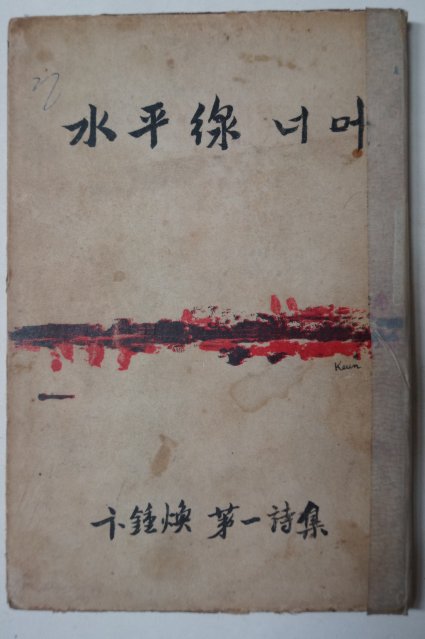 水平線 너머
Keun
卞鍾煥 第一詩集